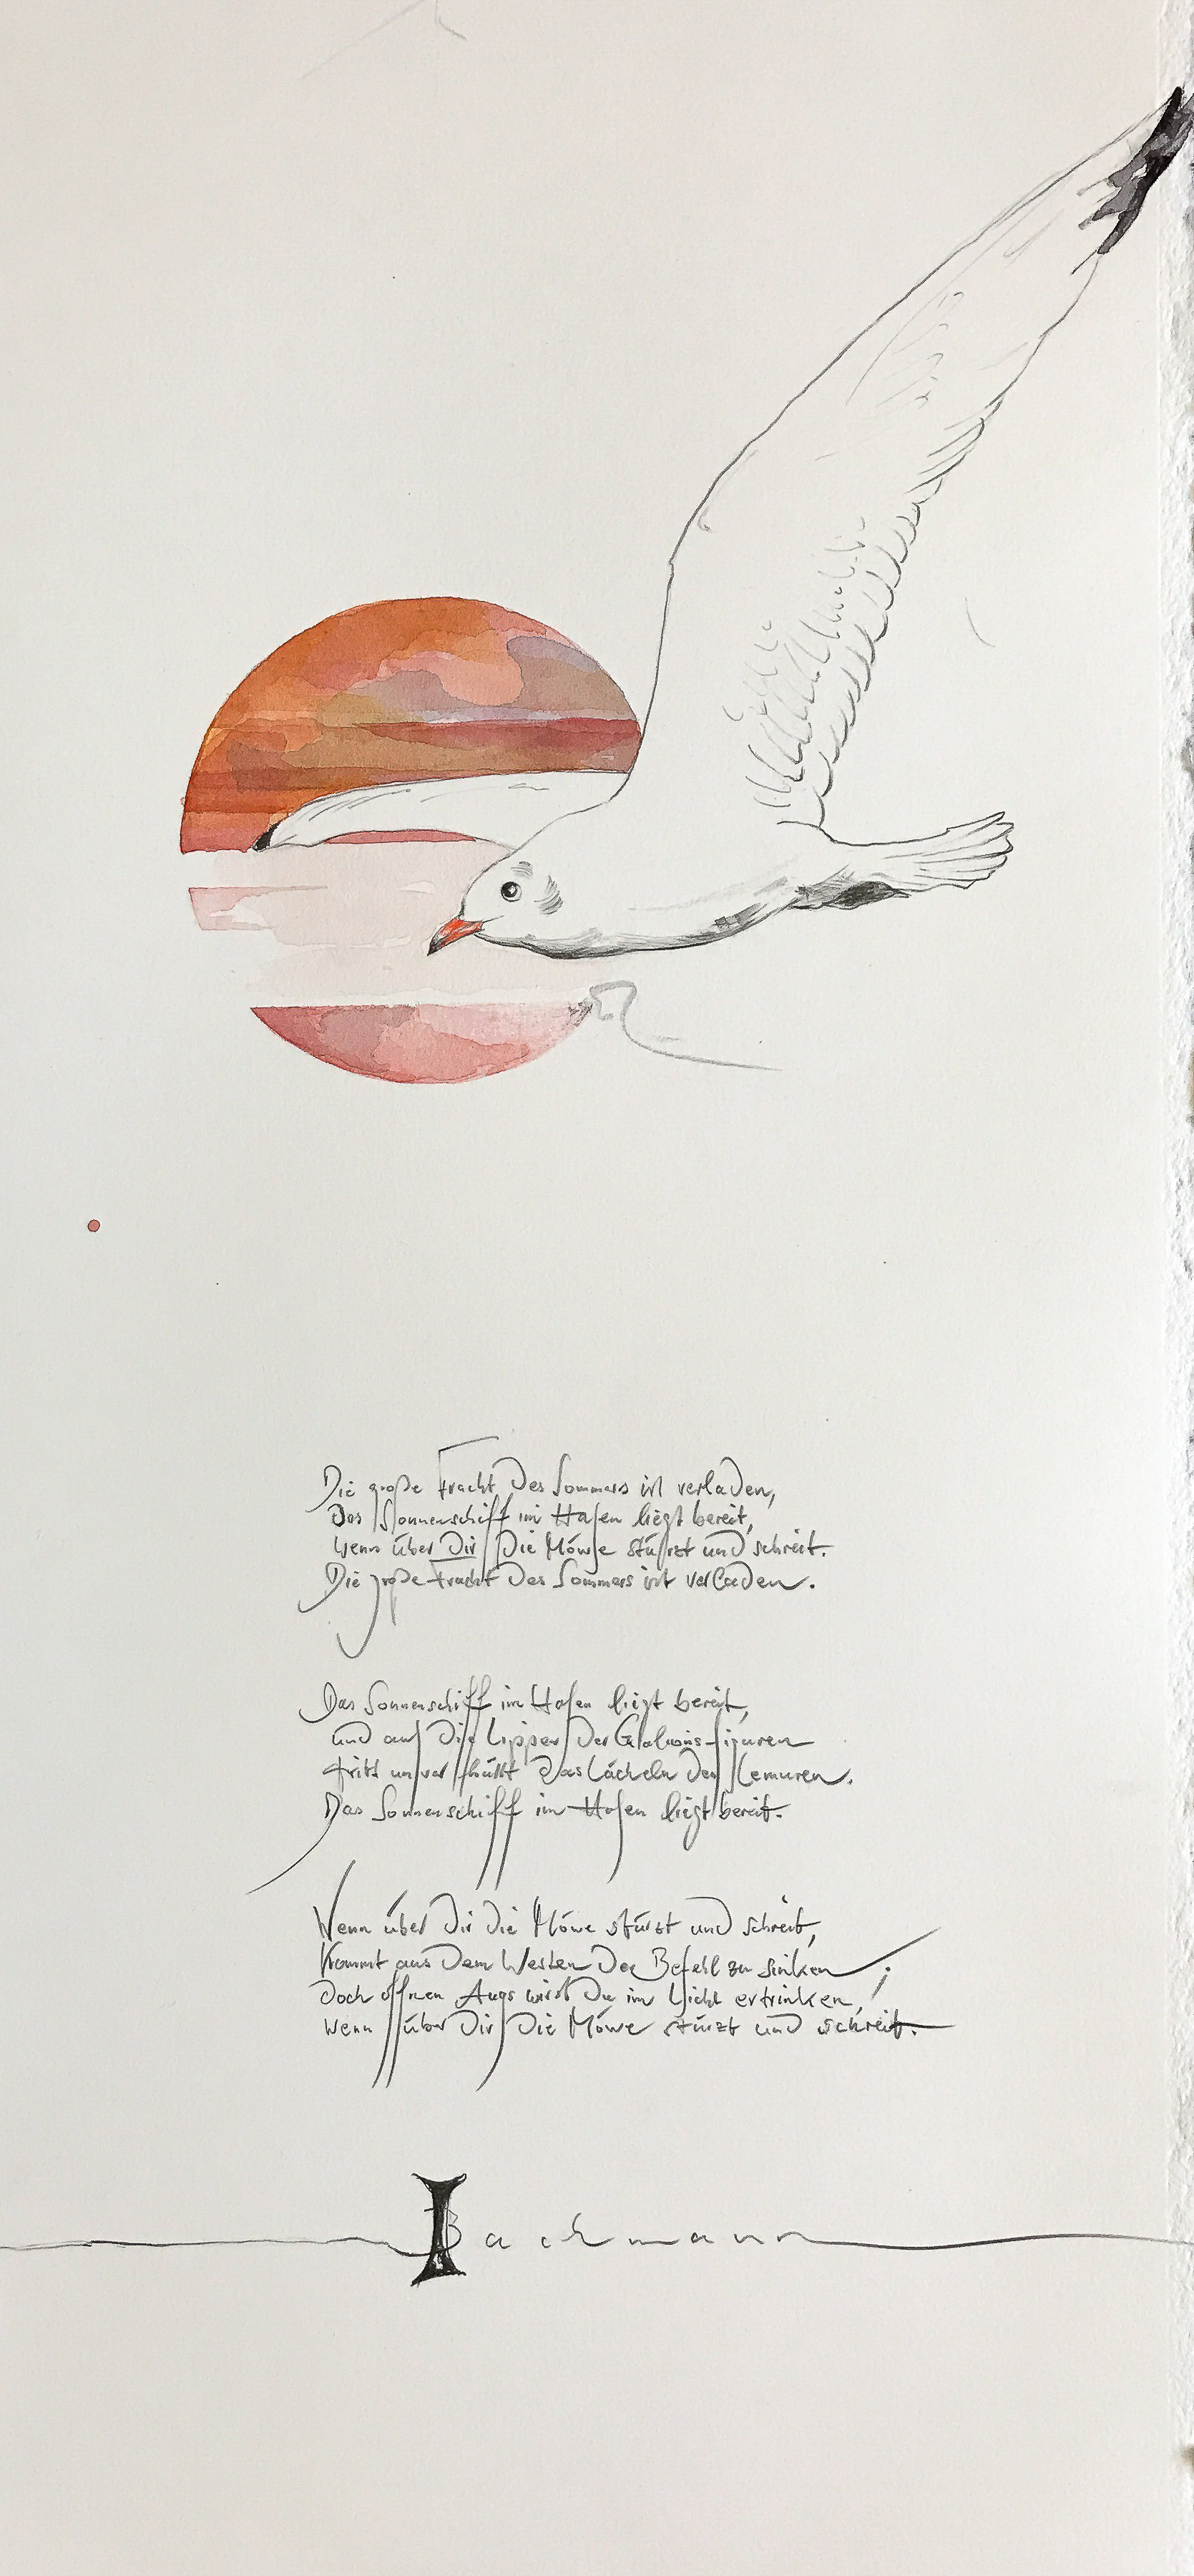 Die große Fracht des Sommers ist verladen,
Das Sonnenschiff im Hafen liegt bereit,
wenn über Dir die Möwe stürzt und schreit.
Die große Fracht des Sommers ist verladen.
Das Sonnenschiff im Hafen liegt bereit,
und auf die Lippen der Galions-figuren
tritt unverhüllt das Lächeln der Lemuren.
Das Sonnenschiff im Hafen liegt bereit.
Wenn über Dir die Möwe stürzt und schreit,
Kommt aus dem Westen der Befehl zu sinken;
doch offnen Augs wirst Du im Licht ertrinken,
wenn über Dir die Möwe stürzt und schreit.
I Bachmann